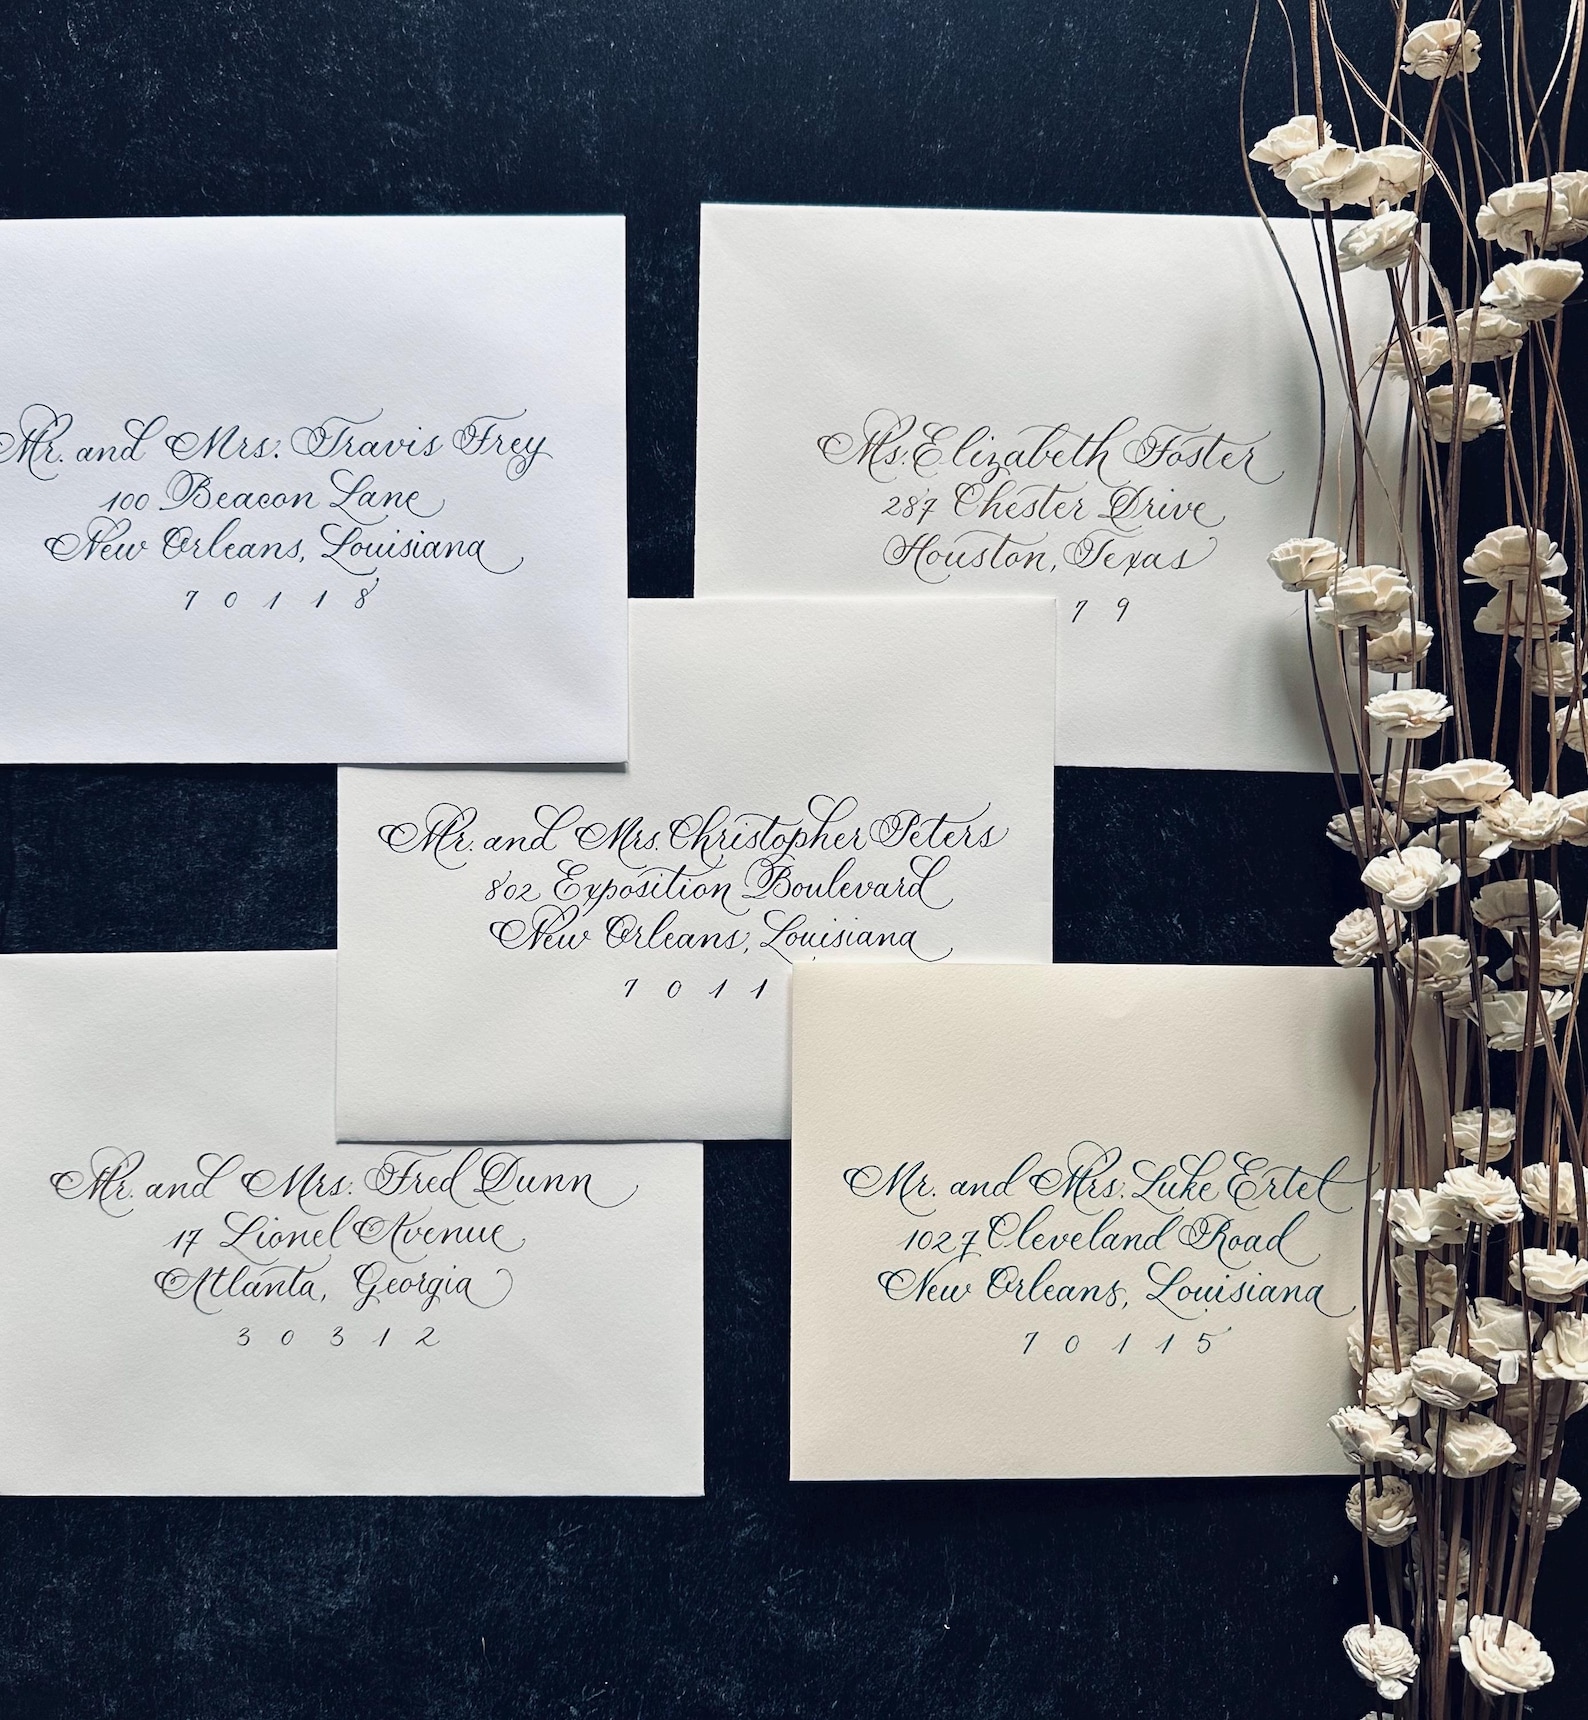 Mr. and Mrs. Travis Frey
100 Beacon Lane
New Orleans, Louisiana
70118
Ms. Elizabeth Foster
287 Chester Drive
Houston, Texas
79
Mr. and Mrs. Christopher Peters
802 Exposition Boulevard
New Orleans, Louisiana
7011
Mr. and Mrs. Fred Dunn
17 Lionel Avenue
Atlanta, Georgia
30312
Mr. and Mrs. Luke Ertel
1027 Cleveland Road
New Orleans, Louisiana
70115